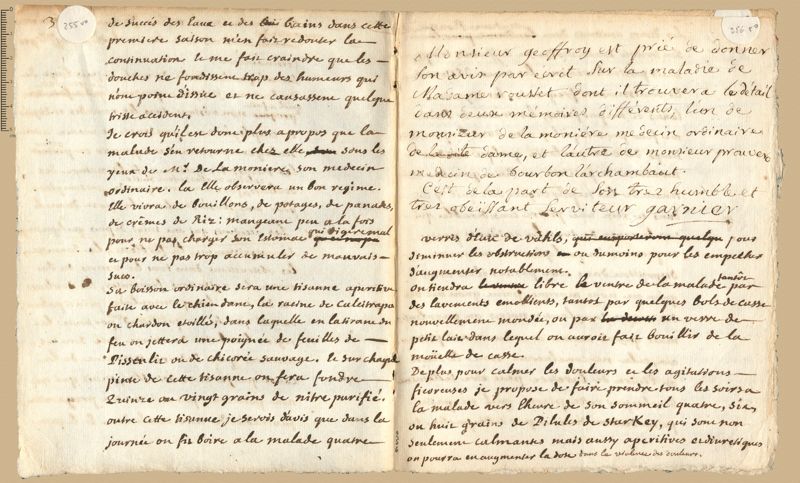 3
255
de succès des Eaux et des bains dans cette
premiere saison m'en fait redouter la
continuation et me fait craindre que les
douches ne fondissent trop des humeurs qui
n'ont point d'issüe et ne causassent quelque
triste accident.
Je crois qu'il est donc plus apropos que la
malade s'en retourne chez elle sous les
yeux de Mr. De Lamoniere son medecin
ordinaire. la Elle observera un bon regime.
Elle vivra de bouillons, de potages, de panades,
de crêmes de Riz: mangeant peu a la fois
pour ne pas charger son Estomac qui digere mal
et pour ne pas trop accumuler de mauvais
sucs.
Sa boisson ordinaire sera une tisanne aperitive
faite avec le chiendant, la racine de calcitrapa
ou chardon etoillé, dans laquelle en la tirant du
feu on jettera une poignée de feuilles de
Pissenlit ou de chicorée sauvage. et sur chaque
pinte de cette tisanne on fera fondre
Quinze ou vingt grains de nitre purifié.
outre cette tisanne, je serois d'avis que dans la
journée on fit boire a la malade quatre
256
Monsieur geoffroy est prié de donner
son avis par ecrit sur la maladie de
Madame rousset dont il trouvera le détail
dans deux memoires differents, l'un de
monsieur de la moniere medecin ordinaire
de la dite dame, et l'autre de monsieur prouvere
medecin de bourbon larchambaut.
C'est de la part de son trez humble et
trez obeissant serviteur garnier
verres d'eau de vahls, pour
diminuer les obstructions ou dumoins pour les empecher
d'augmenter notablement.
on tiendra libre le ventre de la malade tantôt par
des lavements emollients, tantot par quelques bols de casse
nouvellement mondée, ou par un verre de
petit lait dans lequel on auroit fait bouillir de la
moüelle de casse.
De plus, pour calmer les douleurs et les agitations
je propose de faire prendre tous les soirs a
la malade vers l'heure de son sommeil quatre, six,
ou huit grains de Pilules de starkey, qui sont non
seulement calmantes mais aussy aperitives et diuretiques
on pourra en augmenter la dose dans la violence des douleurs.